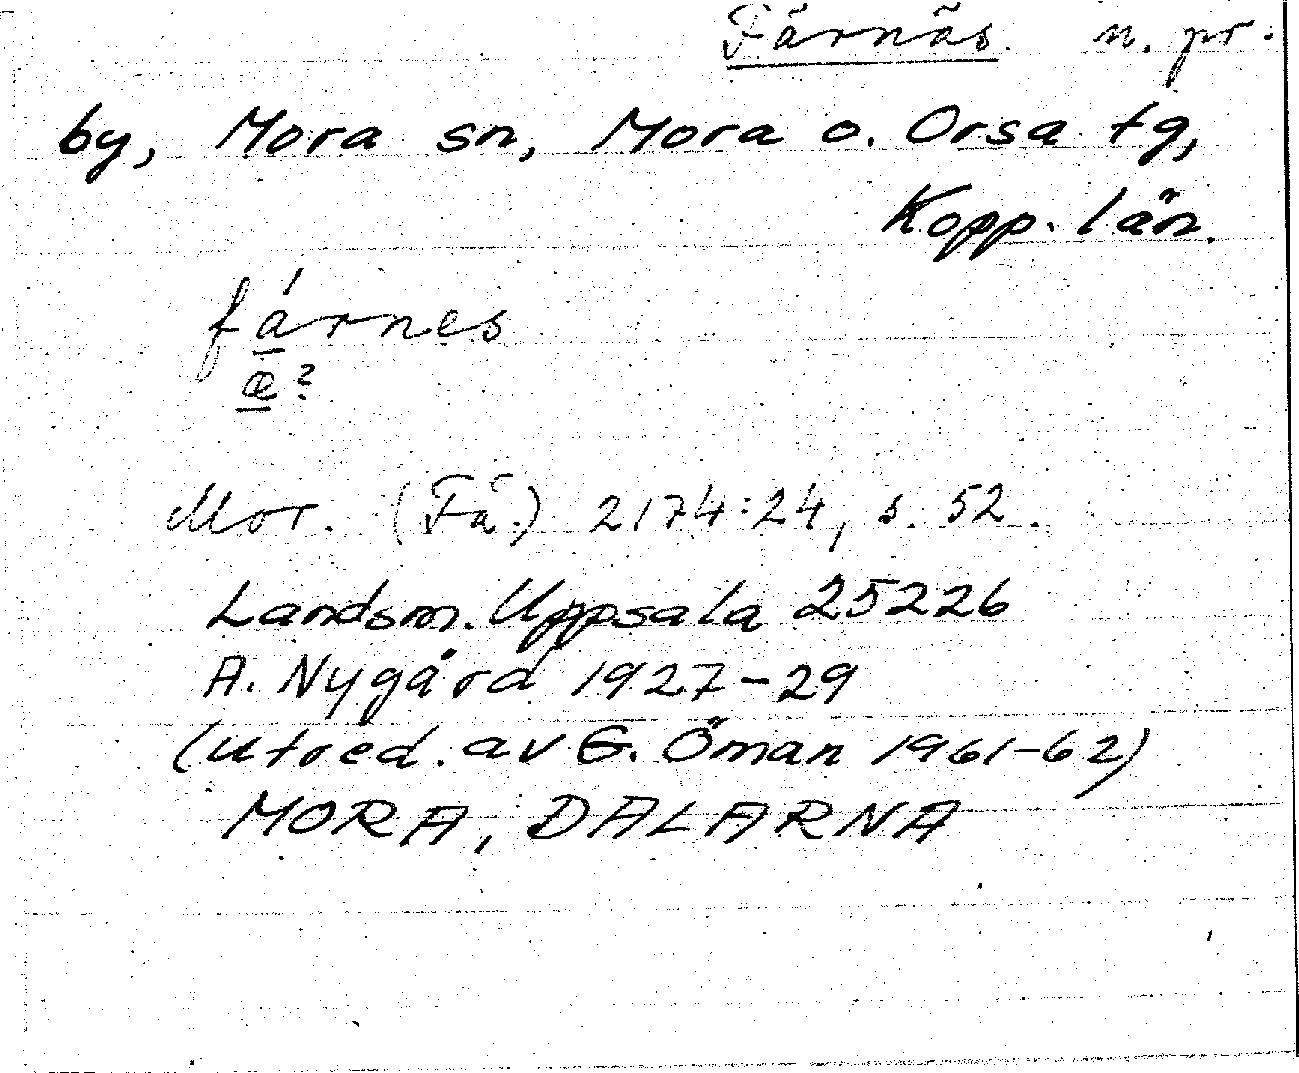 Färnäs. n. pr.
by, Mora sn, Mora o. Orsa tg,
Kopp. län.
fá̲rnes
æ̲?
Mor. (Fä.) 2174:24, s. 52.
Landsm. Uppsala 25226
A. Nygård 1927-29
(utred. av G. Öman 1961-62)
MORA, DALARNA